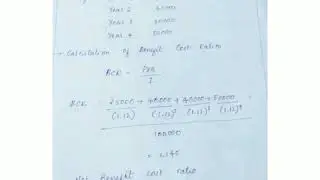 Year 2 40000
Year 3 40000
Year 4 50000
→ Calculation of Benefit Cost Ratio
BCR = PVB
I
BCR = 25000 + 40000 + 40000 + 50000
(1.12) (1.12)² (1.12)³ (1.12)⁴
100000
= 1.145
Net Benefit cost ratio